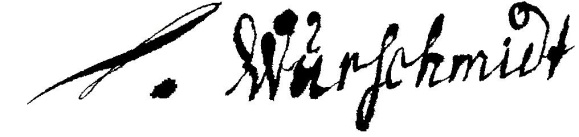 J. Würschmidt